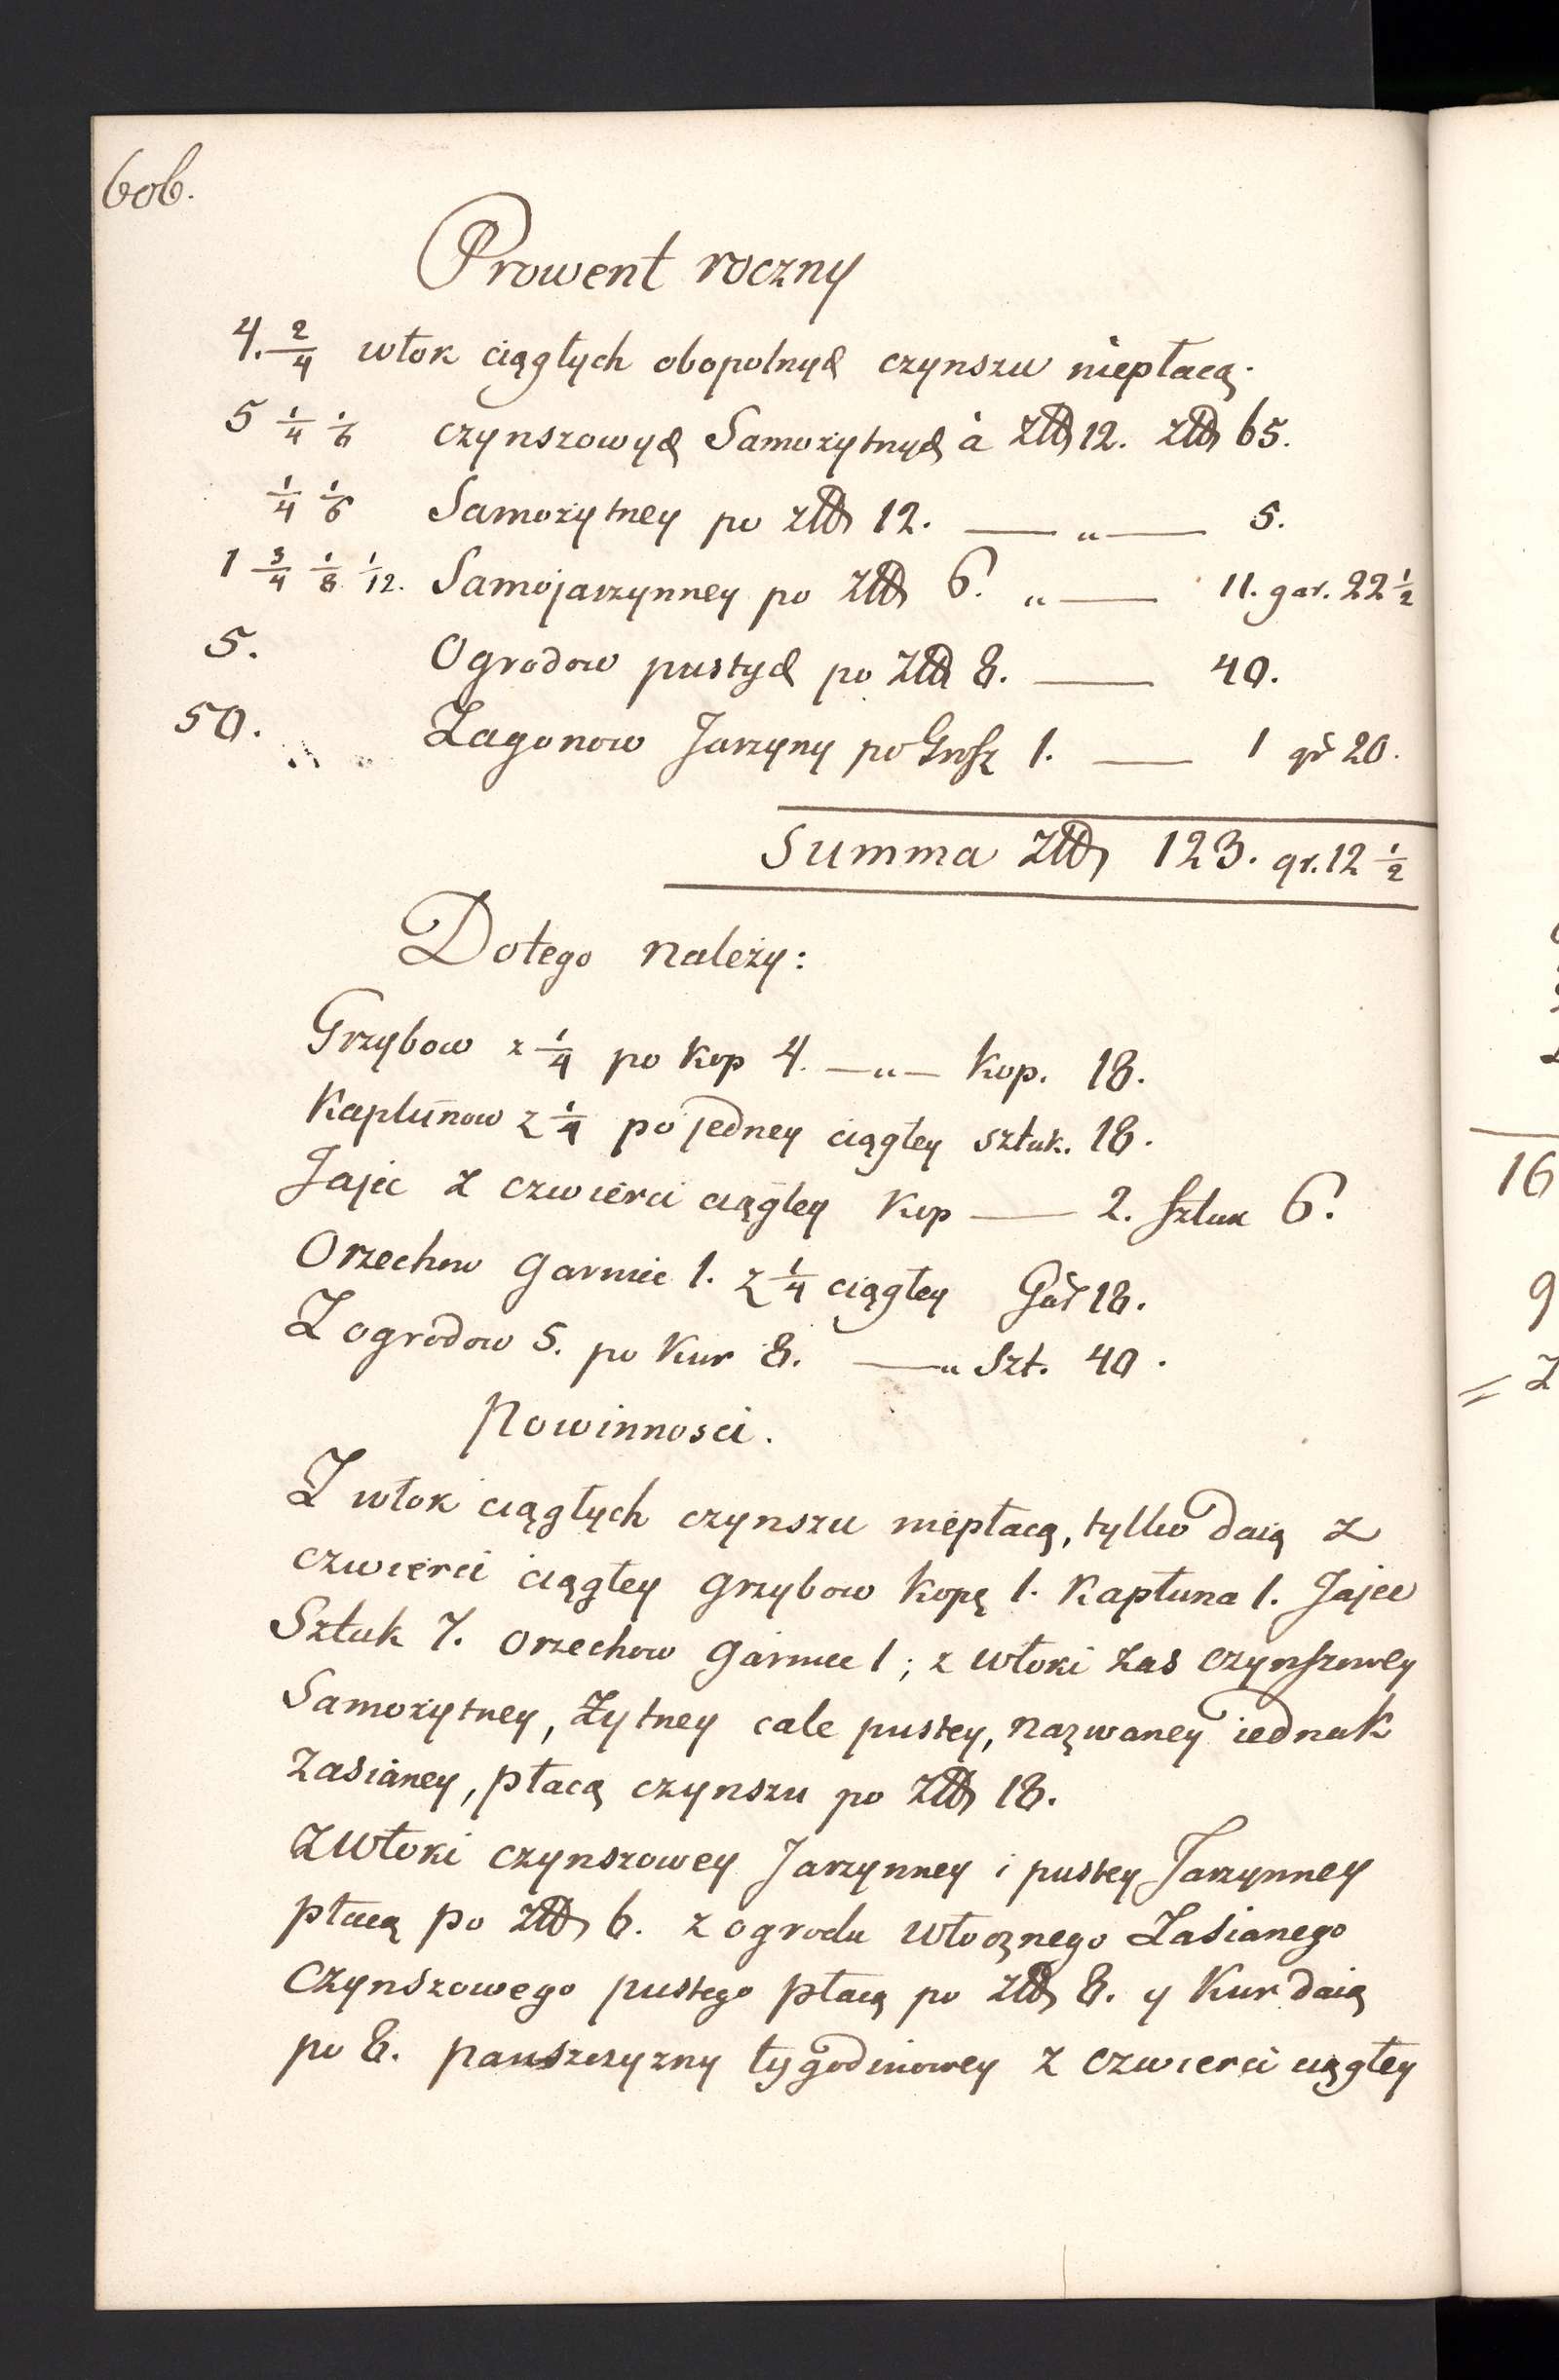 606.
Prowent roczny
4. 2/4 włok ciągłych obopolnych czynszu niepłacą.
5 1/4 1/6 czynszowych Samożytnych à Złł 12. Złł 65.
1/4 1/6 Samożytney po złł 12. — „ — 5.
1 3/4 1/8 1/12. Samojarzynney po Złł 6. „ — 11. gar. 22 1/2
5. Ogrodow pustych po Złł 8. — 40.
50. Zagonow Jarzyny po Grosz 1. — 1 gr 20.
Summa Złł 123. gr. 12 1/2
Dotego należy:
Grzybow z 1/4 po Kop 4. — „ — Kop. 18.
Kapłunow z 1/4 po jedney ciągłey sztuk. 18.
Jajec z czwierci ciągłey Kop — 2. Sztuk 6.
Orzechow Garniec 1. z 1/4 ciągłey Gar 18.
Z ogrodow 5. po Kur 8. — „ Szt. 40.
Powinnosci.
Z włok ciągłych czynszu niepłacą, tylko daią z
czwierci ciągłey grzybow kopę 1. Kapłuna 1. Jajec
Sztuk 7. orzechow garniec 1; z włoki zas czynszowey
Samożytney, Żytney cale pustey, nazwaney iednak
zasianey, płacą czynszu po Złł 18.
z Włoki czynszowey Jarzynney i pustey Jarzynney
płacą po Złł 6. z ogrodu włocznego Zasianego
Czynszowego pustego płacą po Złł 8. y Kur daią
po 8. panszczyzny tygodniowey z czwierci ciągłey
16
9
= Z